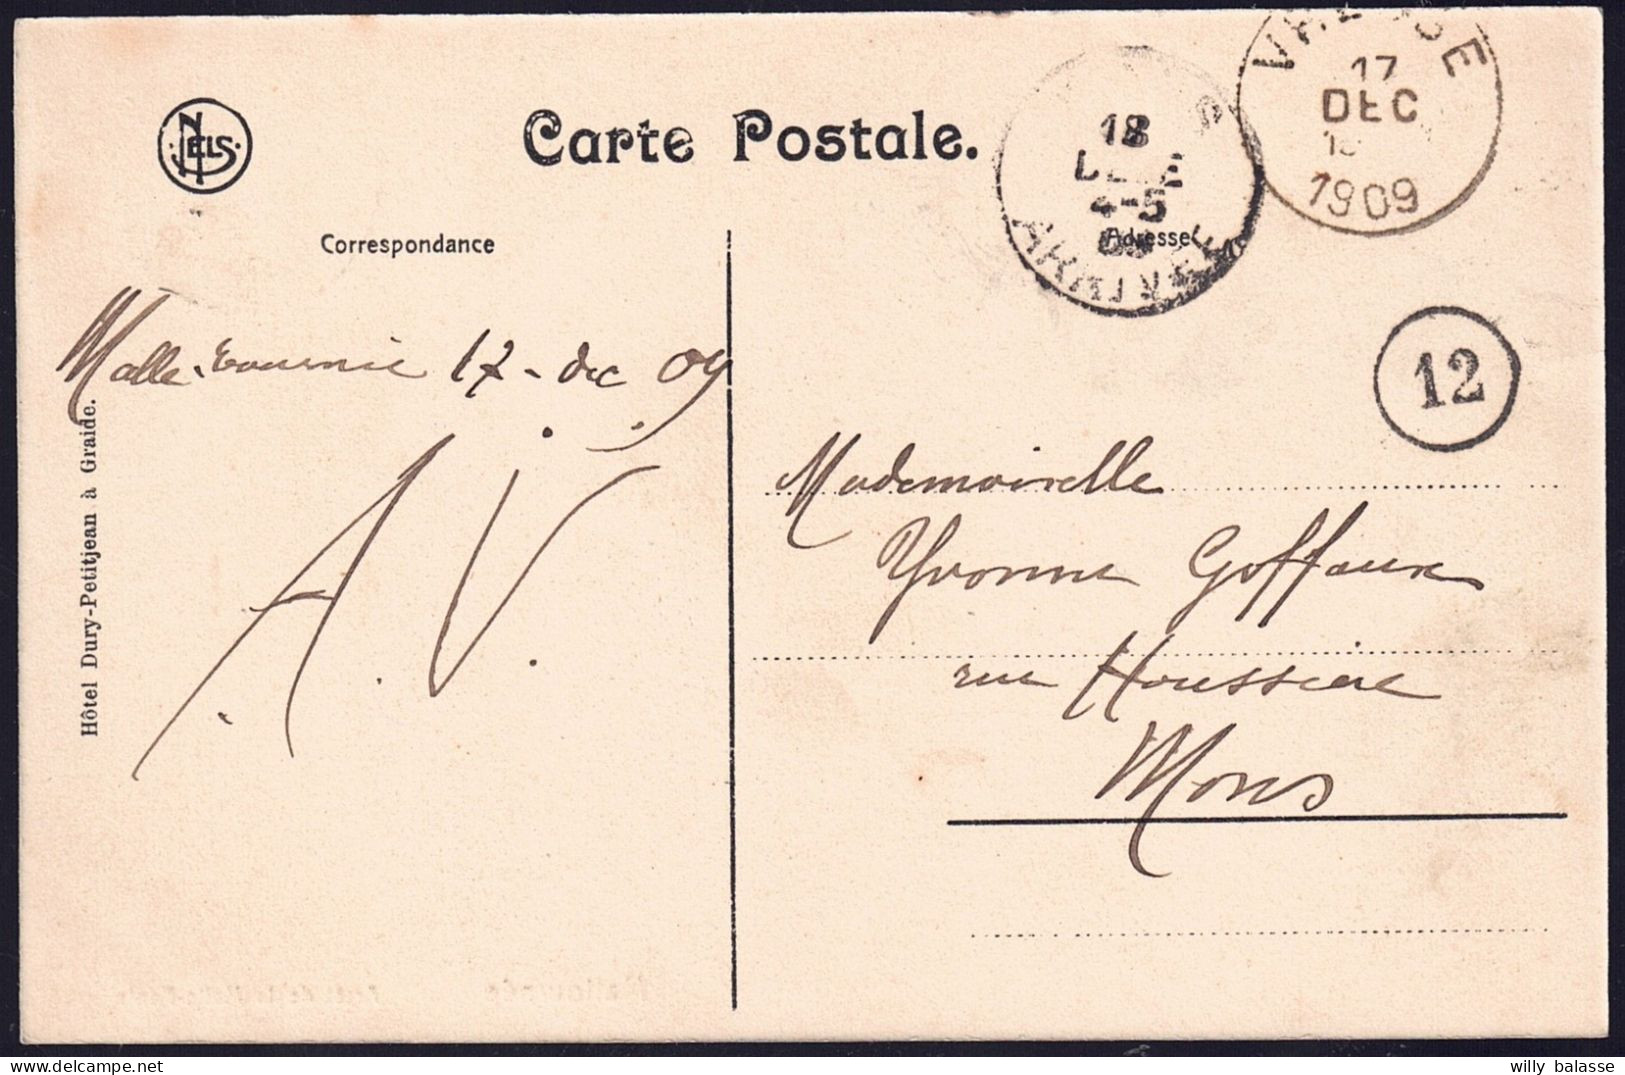 NELS
Carte Postale.
Correspondance
Adresse
17
DEC
1909
18
4-5
09
12
Malle-tournie 17-dec 09
A. V.
Mademoiselle
Yvonne Goffaux
rue Houssière
Mons
Hôtel Dury-Petitjean à Graide.
willy balasse